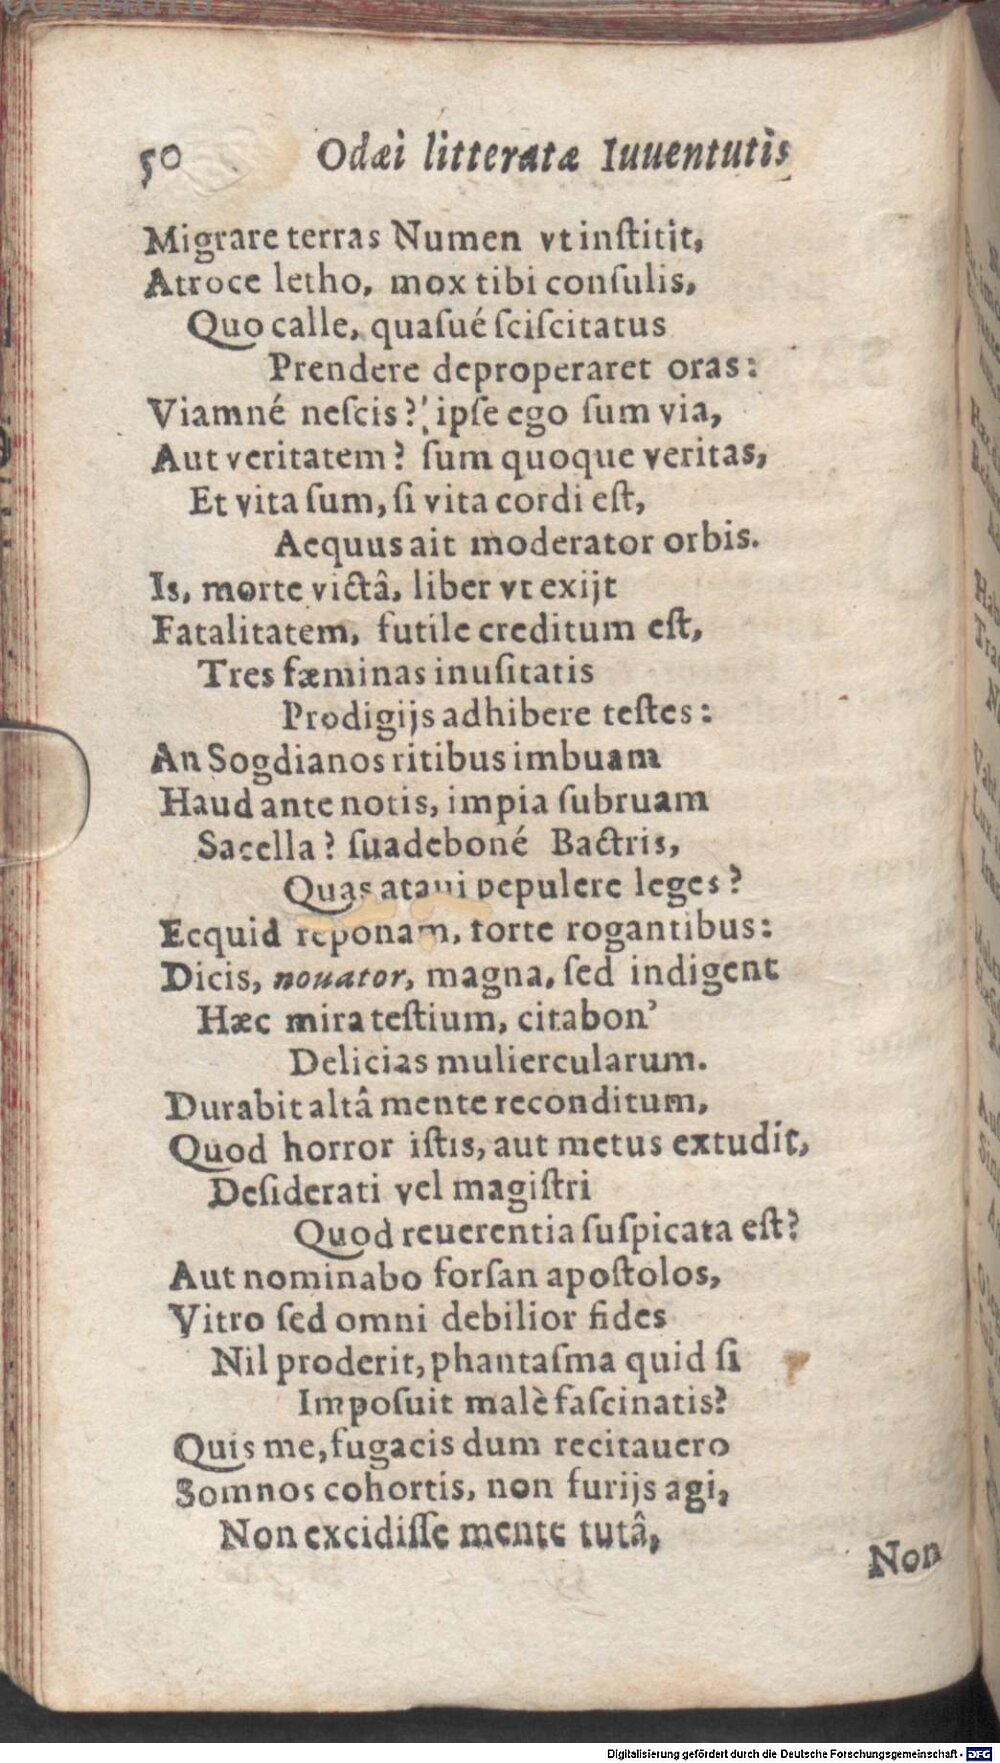 50 Odæi litteratæ Iuuentutis
Migrare terras Numen vt inſtitit,
Atroce letho, mox tibi conſulis,
Quo calle, quaſué ſciſcitatus
Prendere deproperaret oras:
Viamné neſcis? ipſe ego ſum via,
Aut veritatem? ſum quoque veritas,
Et vita ſum, ſi vita cordi eſt,
Aequus ait moderator orbis.
Is, morte victâ, liber vt exijt
Fatalitatem, futile creditum eſt,
Tres fæminas inuſitatis
Prodigijs adhibere teſtes:
An Sogdianos ritibus imbuam
Haud ante notis, impia ſubruam
Sacella? ſuadeboné Bactris,
Quas ataui pepulere leges?
Ecquid reponam, torte rogantibus:
Dicis, nouator, magna, ſed indigent
Hæc mira teſtium, citabon'
Delicias muliercularum.
Durabit altâ mente reconditum,
Quod horror iſtis, aut metus extudit,
Deſiderati vel magiſtri
Quod reuerentia ſuſpicata eſt?
Aut nominabo forſan apoſtolos,
Vitro ſed omni debilior fides
Nil proderit, phantaſma quid ſi
Impoſuit malè faſcinatis?
Quis me, fugacis dum recitauero
Somnos cohortis, non furijs agi,
Non excidiſſe mente tutâ,
Non
Digitalisierung gefördert durch die Deutsche Forschungsgemeinschaft - DFG